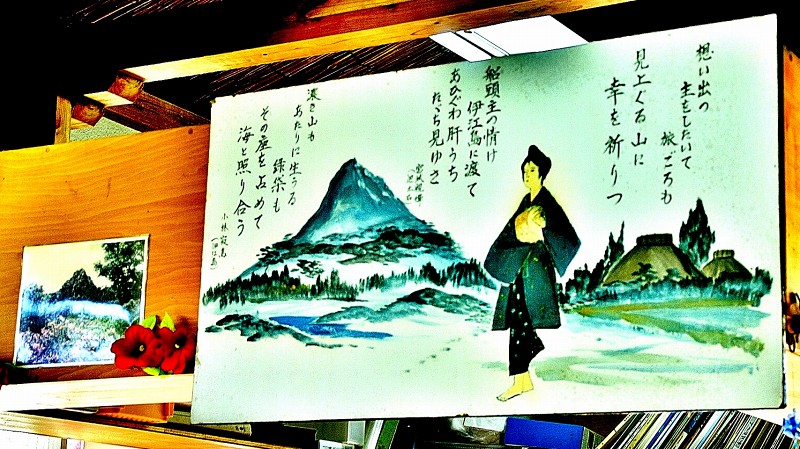 想い出の
主をしたいて
旅ごろも
見上ぐる山に
幸を祈りつ
船頭主の情け
伊江島に渡て
あひぐわ肝うち
たっち見ゆさ
濃き山も
あたりに生うる
緑葉も
その座を占めて
海と照り合う
小林